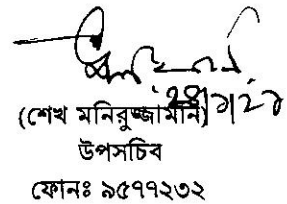 (শেখ মনিরুজ্জামান)
উপসচিব
ফোনঃ ৯৫৭৭২৩২